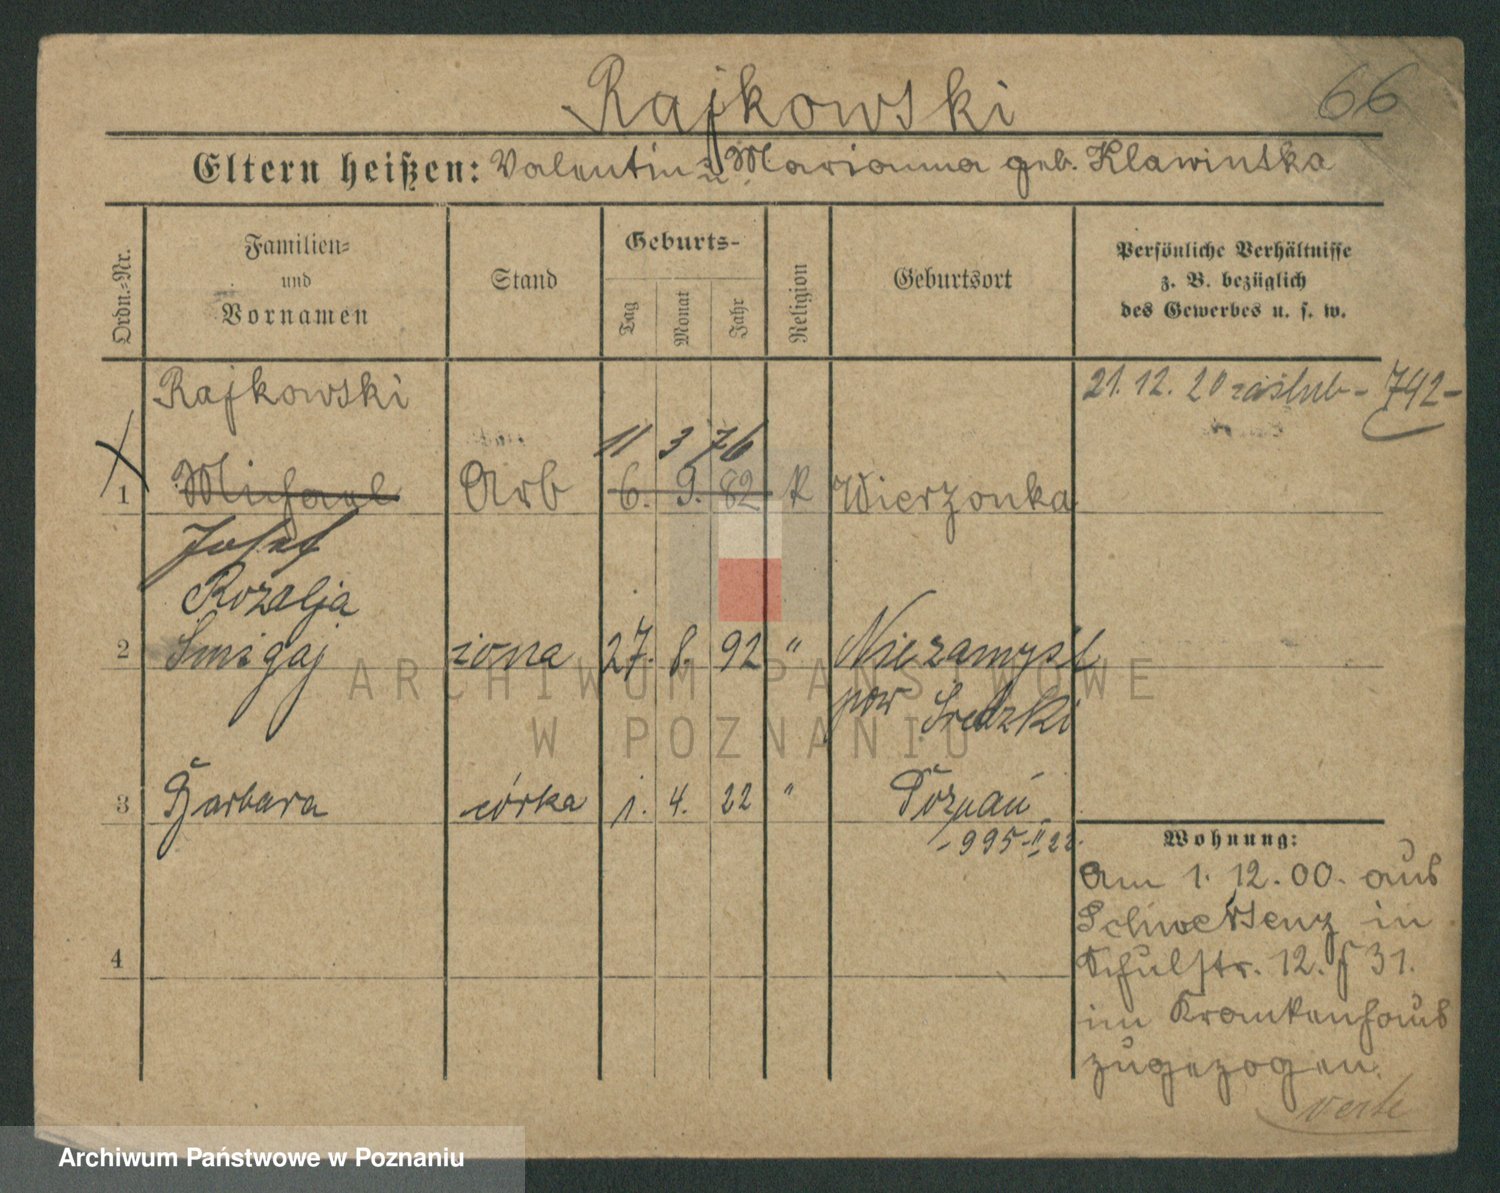 Rajkowski
66
Eltern heißen: Valentin u. Marianna geb. Klawinska
Ordn.-Nr.
Familien-
und
Vornamen
Stand
Geburts-
Tag
Monat
Jahr
Religion
Geburtsort
Persönliche Verhältnisse
z. B. bezüglich
des Gewerbes u. s. w.
Rajkowski
21. 12. 20 zaślub - 742-
11 3 76
1 Michael Arb 6. 9. 82 K Wierzonka
Josef
Rozalja
2 Śmigaj żona 27. 8. 92 " Niezamyśl
pow Średzki
3 Barbara córka 1. 4. 22 " Poznań
-995-II 22.
4
Wohnung:
Am 1. 12. 00. aus
Schwersenz in
Schulstr. 12. § 31.
im Krankenhaus
zugezogen.
verte
ARCHIWUM PAŃSTWOWE
W POZNANIU
Archiwum Państwowe w Poznaniu